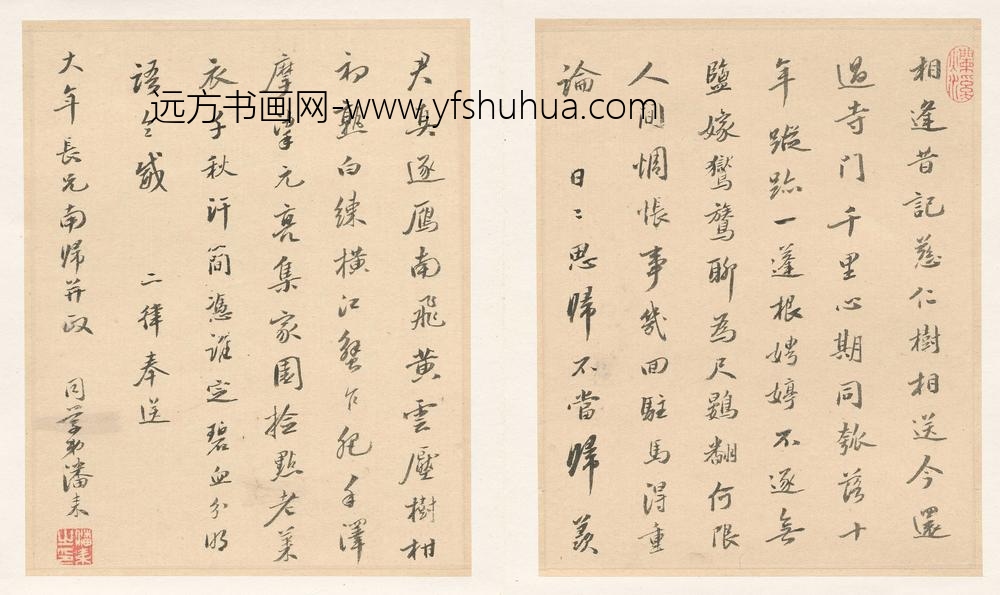 相逢昔記慈仁樹相送今還
過寺门千里心期同瓠落十
年蹤跡一蓬根娉婷不逐無
鹽嫁鸑鷟聊為尺鷃翻何限
人間惆悵事幾回駐馬淂重
論 日〻思歸不當歸羨
君真逐鴈南飛黃雲壓樹柑
初熟白練橫江蟹乍肥手澤
摩挲元亮集家園撿點老萊
衣千秋汗簡憑誰定碧血分明
語 二律奉送
大年長兄南歸并政 同學弟潘耒
潘耒之印
远方书画网-www.yfshuhua.com